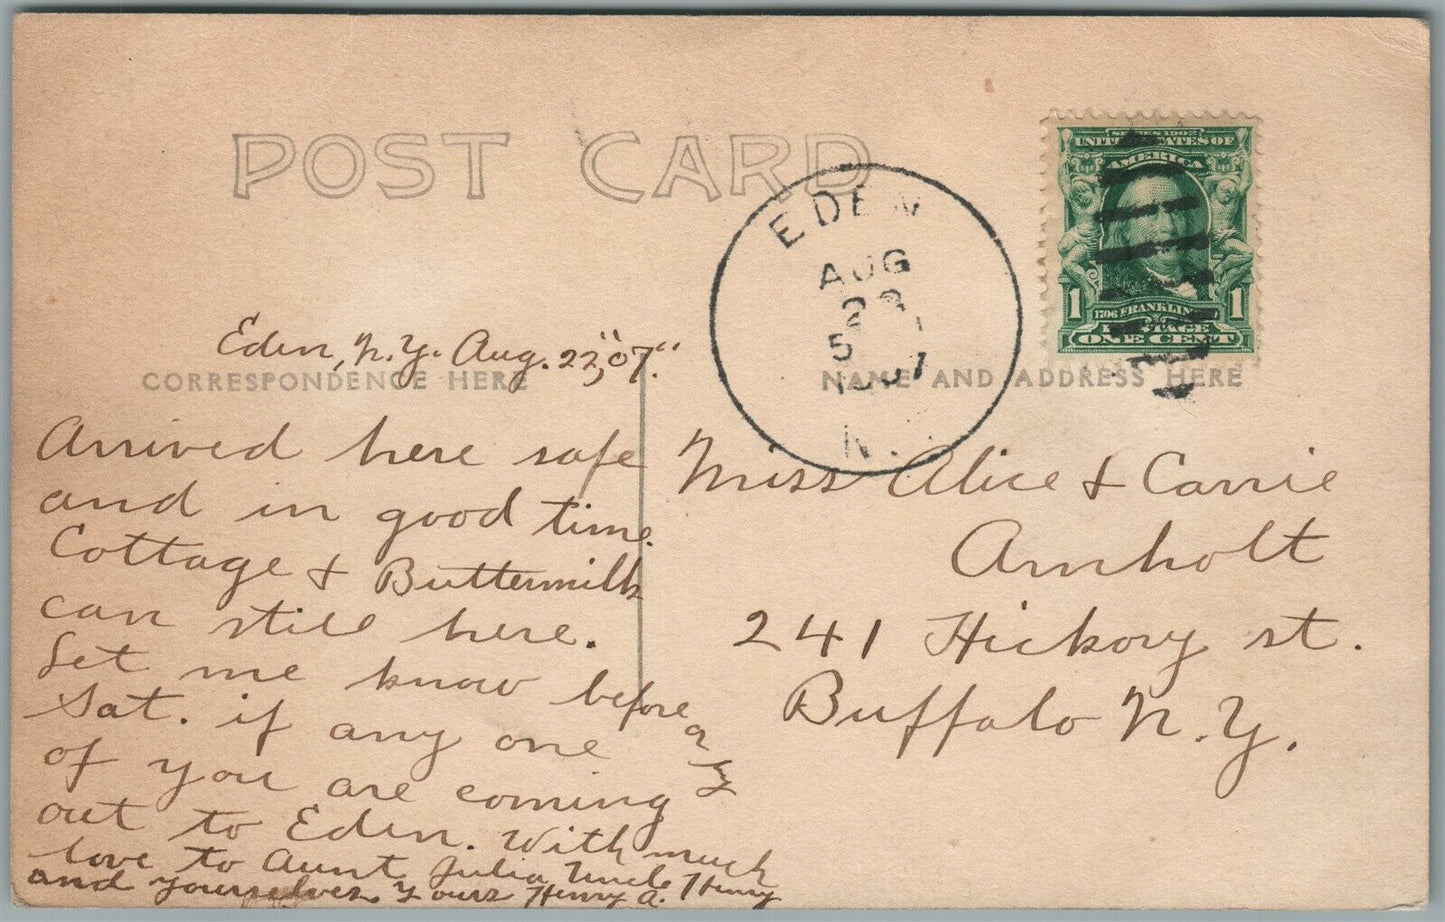 POST CARD
EDEN
AUG
23
5
1907
N.
SERIES 1902
UNITED STATES OF
AMERICA
1 1706 FRANKLIN 1
POSTAGE
ONE CENT
CORRESPONDENCE HERE
NAME AND ADDRESS HERE
Eden, N.Y. Aug. 22," 07."
Arrived here safe
and in good time.
Cottage & Buttermilk
can still here.
Let me know before
Sat. if any one
of you are coming
out to Eden. With much
love to Aunt Julia, Uncle Henry
and yourselves. Yours Henry A.
Miss Alice & Carrie
Amholt
241 Hickory st.
Buffalo N.Y.